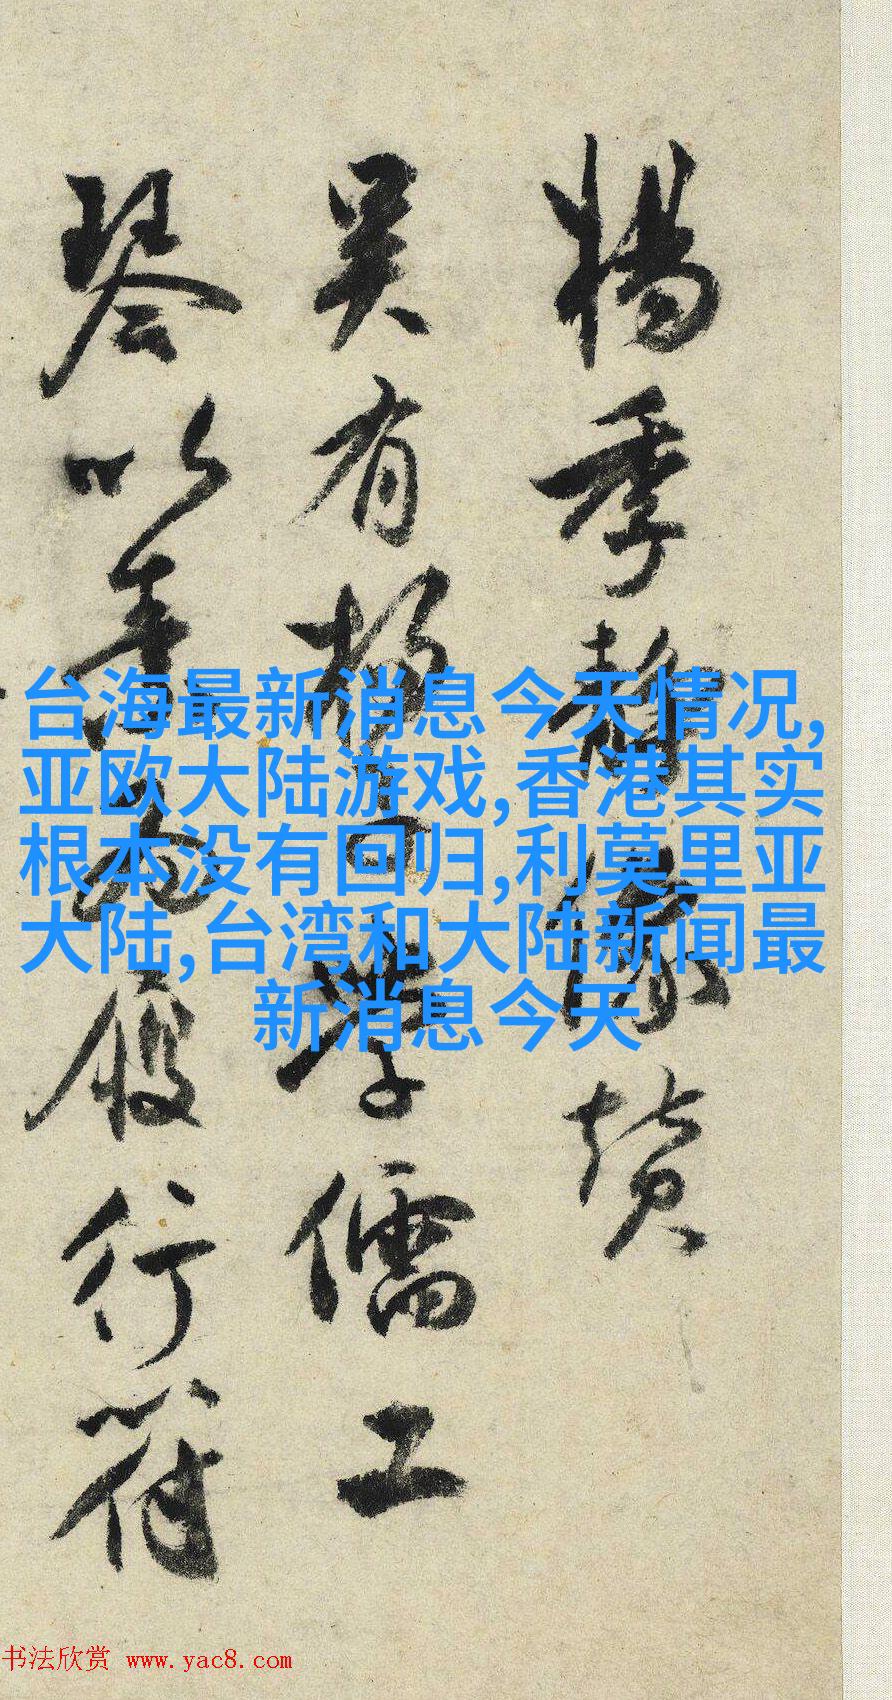 楊季靜像贊
吴有楊子業儒工
琴以善為履行符
台海最新消息今天情况,
亚欧大陆游戏,香港其实
根本没有回归,利莫里亚
大陆,台湾和大陆新闻最
新消息今天
书法欣赏 www.yac8.com